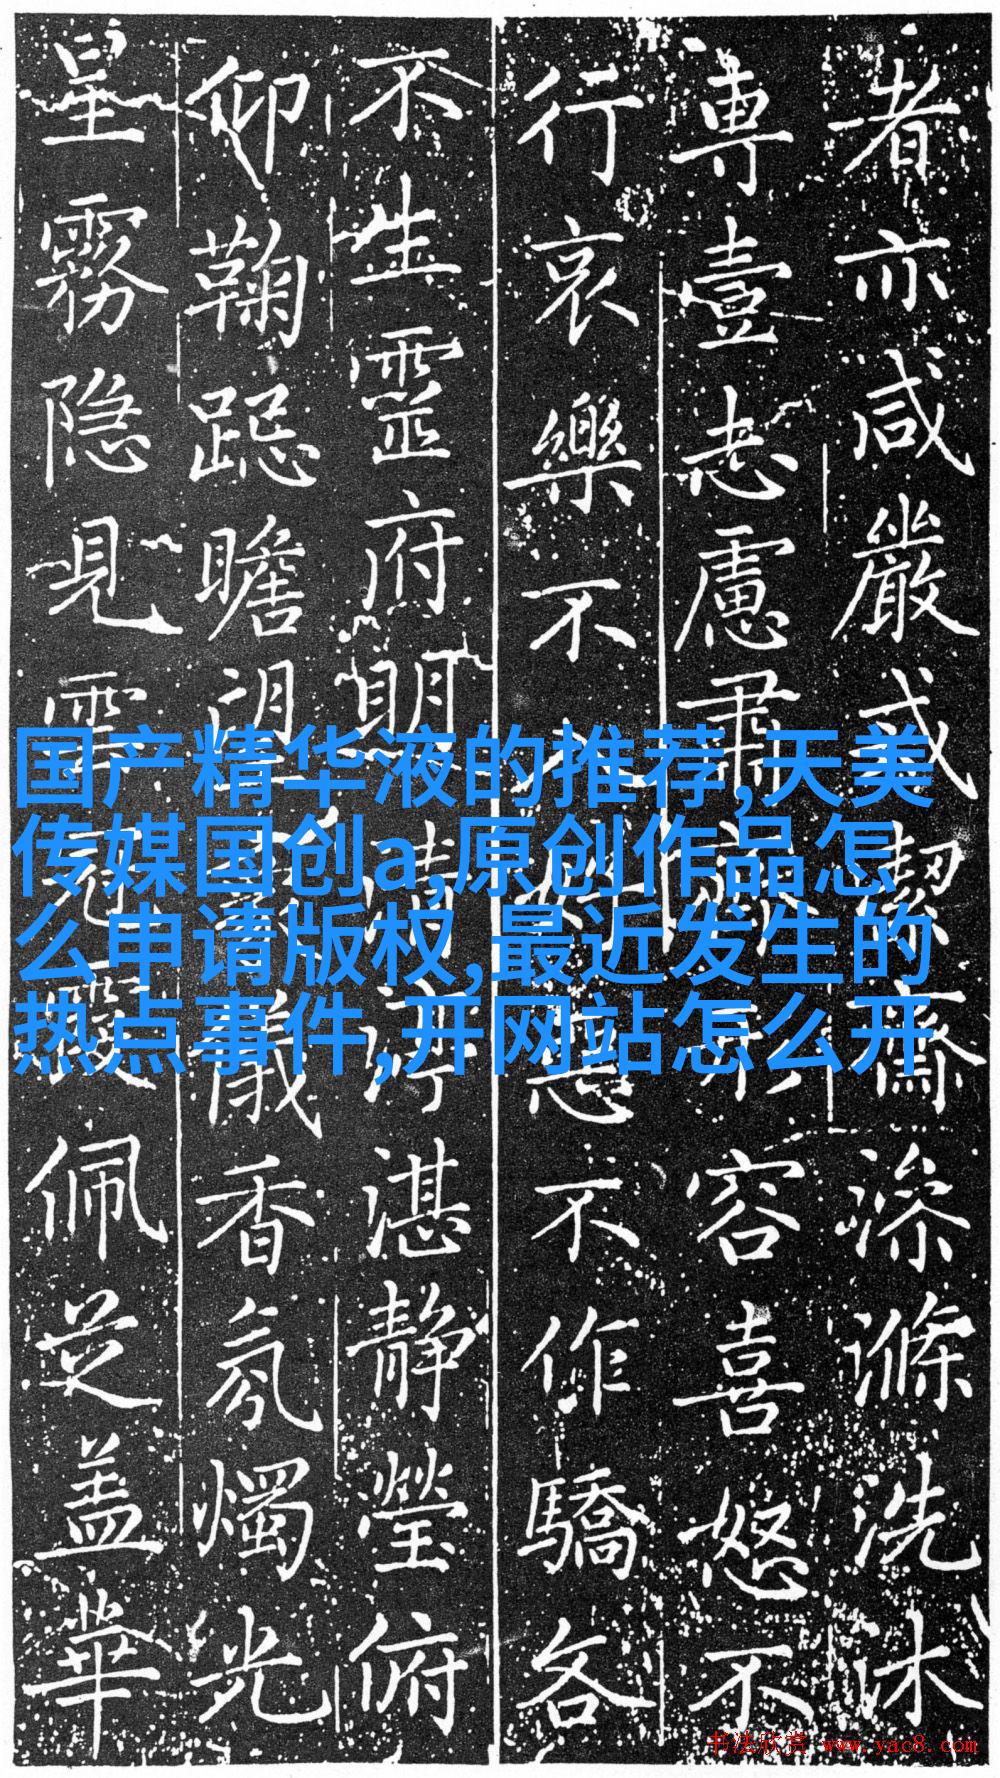 者亦咸嚴戒潔齋滌滌洗沐
專壹志慮肅 容喜怒不
行哀樂不 不作驕各
不生靈府明 湛靜瑩俯
仰鞠跽瞻 香氛燭光
星霧隐見雲 佩芝盖華
国产精华液的推荐,天美
传媒国创a,原创作品怎
么申请版权,最近发生的
热点事件,开网站怎么开
书法欣赏 www.yac8.com